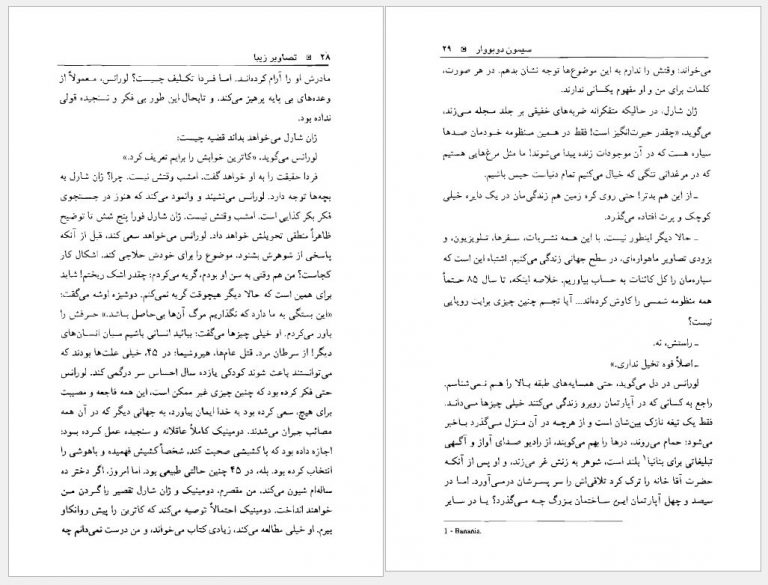 ۲۸ ◙ تصاویر زیبا
مادرش او را آرام کرده‌اند. اما فردا تکلیف چیست؟ لورانس، معمولاً از
وعده‌های بی پایه پرهیز می‌کند، و تابحال این طور بی فکر و نسنجیده قولی
نداده بود.
ژان شارل می‌خواهد بداند قضیه چیست:
لورانس می‌گوید، «کاترین خوابش را برایم تعریف کرد.»
فردا حقیقت را به او خواهد گفت. امشب وقتش نیست. چرا؟ ژان شارل به
بچه‌ها توجه دارد. لورانس می‌نشیند و وانمود می‌کند که هنوز در جستجوی
فکر بکر کذایی است. امشب وقتش نیست. ژان شارل فورا پنج شش تا توضیح
ظاهراً منطقی تحویلش خواهد داد. لورانس می‌خواهد سعی کند، قبل از آنکه
پاسخی از شوهرش بشنود، موضوع را برای خودش حلاجی کند. اشکال کار
کجاست؟ من هم وقتی به سن او بودم، گریه می‌کردم: چقدر اشک ریختم! شاید
برای همین است که حالا دیگر هیچوقت گریه نمی‌کنم. دوشیزه اوشه می‌گفت:
«این بستگی به ما دارد که نگذاریم مرگ آن‌ها بی‌حاصل باشد.» حرفش را
باور می‌کردم. او خیلی چیزها می‌گفت: بیائید انسانی باشیم میان انسان‌های
دیگر! از سرطان مرد. قتل عام‌ها، هیروشیما: در ۴۵، خیلی علت‌ها بودند که
می‌توانستند باعث شوند کودکی یازده سال احساس سر درگمی کند. لورانس
حتی فکر کرده بود که چنین چیزی غیر ممکن است، این همه فاجعه و مصیبت
برای هیچ، سعی کرده بود به خدا ایمان بیاورد، به جهانی دیگر که در آن همه
مصائب جبران می‌شدند. دومینیک کاملاً عاقلانه و سنجیده عمل کرده بود:
اجازه داده بود که با کشیشی صحبت کند، شخصاً کشیش فهمیده و باهوشی را
انتخاب کرده بود. بله، در ۴۵ چنین حالتی طبیعی بود. اما امروز، اگر دختر ده
ساله‌ام شیون می‌کند، من مقصرم. دومینیک و ژان شارل تقصیر را گردن من
خواهند انداخت. دومینیک احتمالاً توصیه می‌کند که کاترین را پیش روانکاو
ببرم. او خیلی مطالعه می‌کند، زیادی کتاب می‌خواند، و من درست نمی‌دانم چه
سیمون دوبووار ◙ ۲۹
می‌خواند: وقتش را ندارم به این موضوع‌ها توجه نشان بدهم. در هر صورت،
کلمات برای من و او مفهوم یکسانی ندارند.
ژان شارل، در حالیکه متفکرانه ضربه‌های خفیفی بر جلد مجله می‌زند،
می‌گوید، «چقدر حیرت‌انگیز است! فقط در همین منظومه خودمان صدها
سیاره هست که در آن موجودات زنده پیدا می‌شوند! ما مثل مرغ‌هایی هستیم
که در مرغدانی تنگی که خیال می‌کنیم تمام دنیاست حبس باشیم.
ـ از این هم بدتر! حتی روی کره زمین هم زندگی‌مان در یک دایره خیلی
کوچک و پرت افتاده می‌گذرد.
ـ حالا دیگر اینطور نیست. با این همه نشریات، سفرها، تلویزیون، و
بزودی تصاویر ماهواره‌ای، در سطح جهانی زندگی می‌کنیم. اشتباه این است که
سیاره‌مان را کل کائنات به حساب بیاوریم. خلاصه اینکه، تا سال ۸۵ حتماً
همه منظومه شمسی را کاوش کرده‌اند.... آیا تجسم چنین چیزی برایت رویایی
نیست؟
ـ راستش، نه.
ـ اصلاً قوه تخیل نداری.»
لورانس در دل می‌گوید، حتی همسایه‌های طبقه بالا را هم نمی‌شناسم.
راجع به کسانی که در آپارتمان روبرو زندگی می‌کنند خیلی چیزها می‌داند.
فقط یک تیغه نازک بین‌شان است و از هرچه در آن منزل می‌گذرد باخبر
می‌شود: حمام می‌روند، درها را بهم می‌کوبند، از رادیو صدای آواز و آگهی
تبلیغاتی برای بنانیا۱ بلند است، شوهر به زنش غر می‌زند، و او پس از آنکه
حضرت آقا خانه را ترک کرد تلافی‌اش را سر پسرشان درمی‌آورد. اما در
سیصد و چهل آپارتمان این ساختمان بزرگ چه می‌گذرد؟ یا در سایر
1 - Banania.